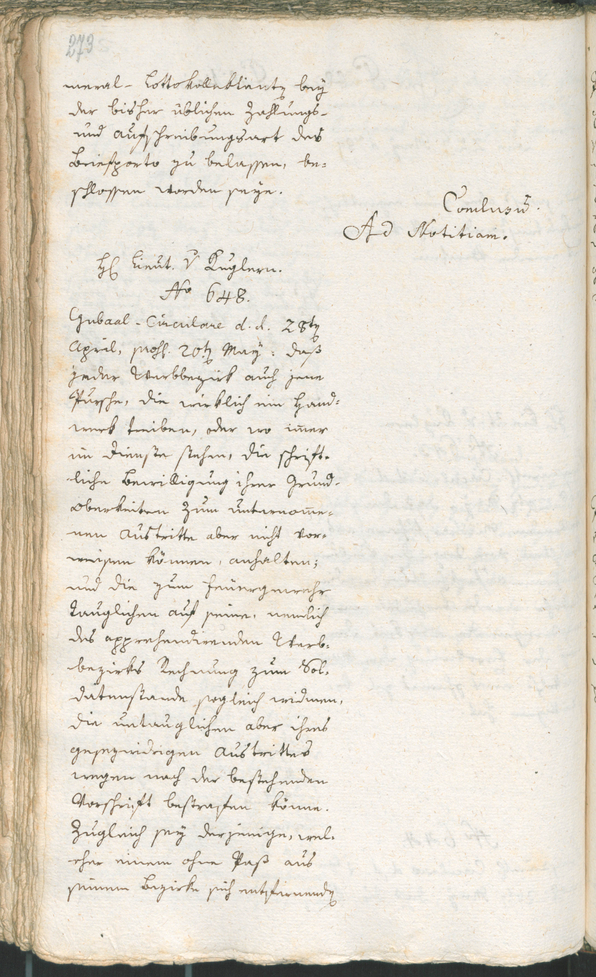 273
meral- Lottokollektantz bey
der bisher üblichen Zahlungs-
und Aufschreibungsart des
Briefporto zu belassen, be-
schlossen worden seye.
Conclusū.
Ad Notitiam.
H Lieut. V Kuglern.
No 648.
Gubaal-Circulare d. d. 28tz
April, 20tz May: daß
jeder Werbbezirk auch jene
Pursche, die wirklich ein Hand-
werk treiben, oder wo im̄er
in Dienste stehen, die schrift-
liche Bewilligung ihrer Grund-
oberkeiten zum unternom̄e-
nen Austritte aber nicht vor-
weisen können, anhalten;
und die zum Feuergewehr
tauglichen auf seine, nemlich
des apprehendirenden Werb-
bezirks Rechnung zum Sol-
datenstande sogleich widmen,
die untauglichen aber ihres
gesezwidrigen Austrittes
wegen nach der bestehenden
Vorschrift bestrafen könne.
Zugleich sey derjenige, wel-
cher einem ohne Paß aus
seinem Bezirke sich entfernendz